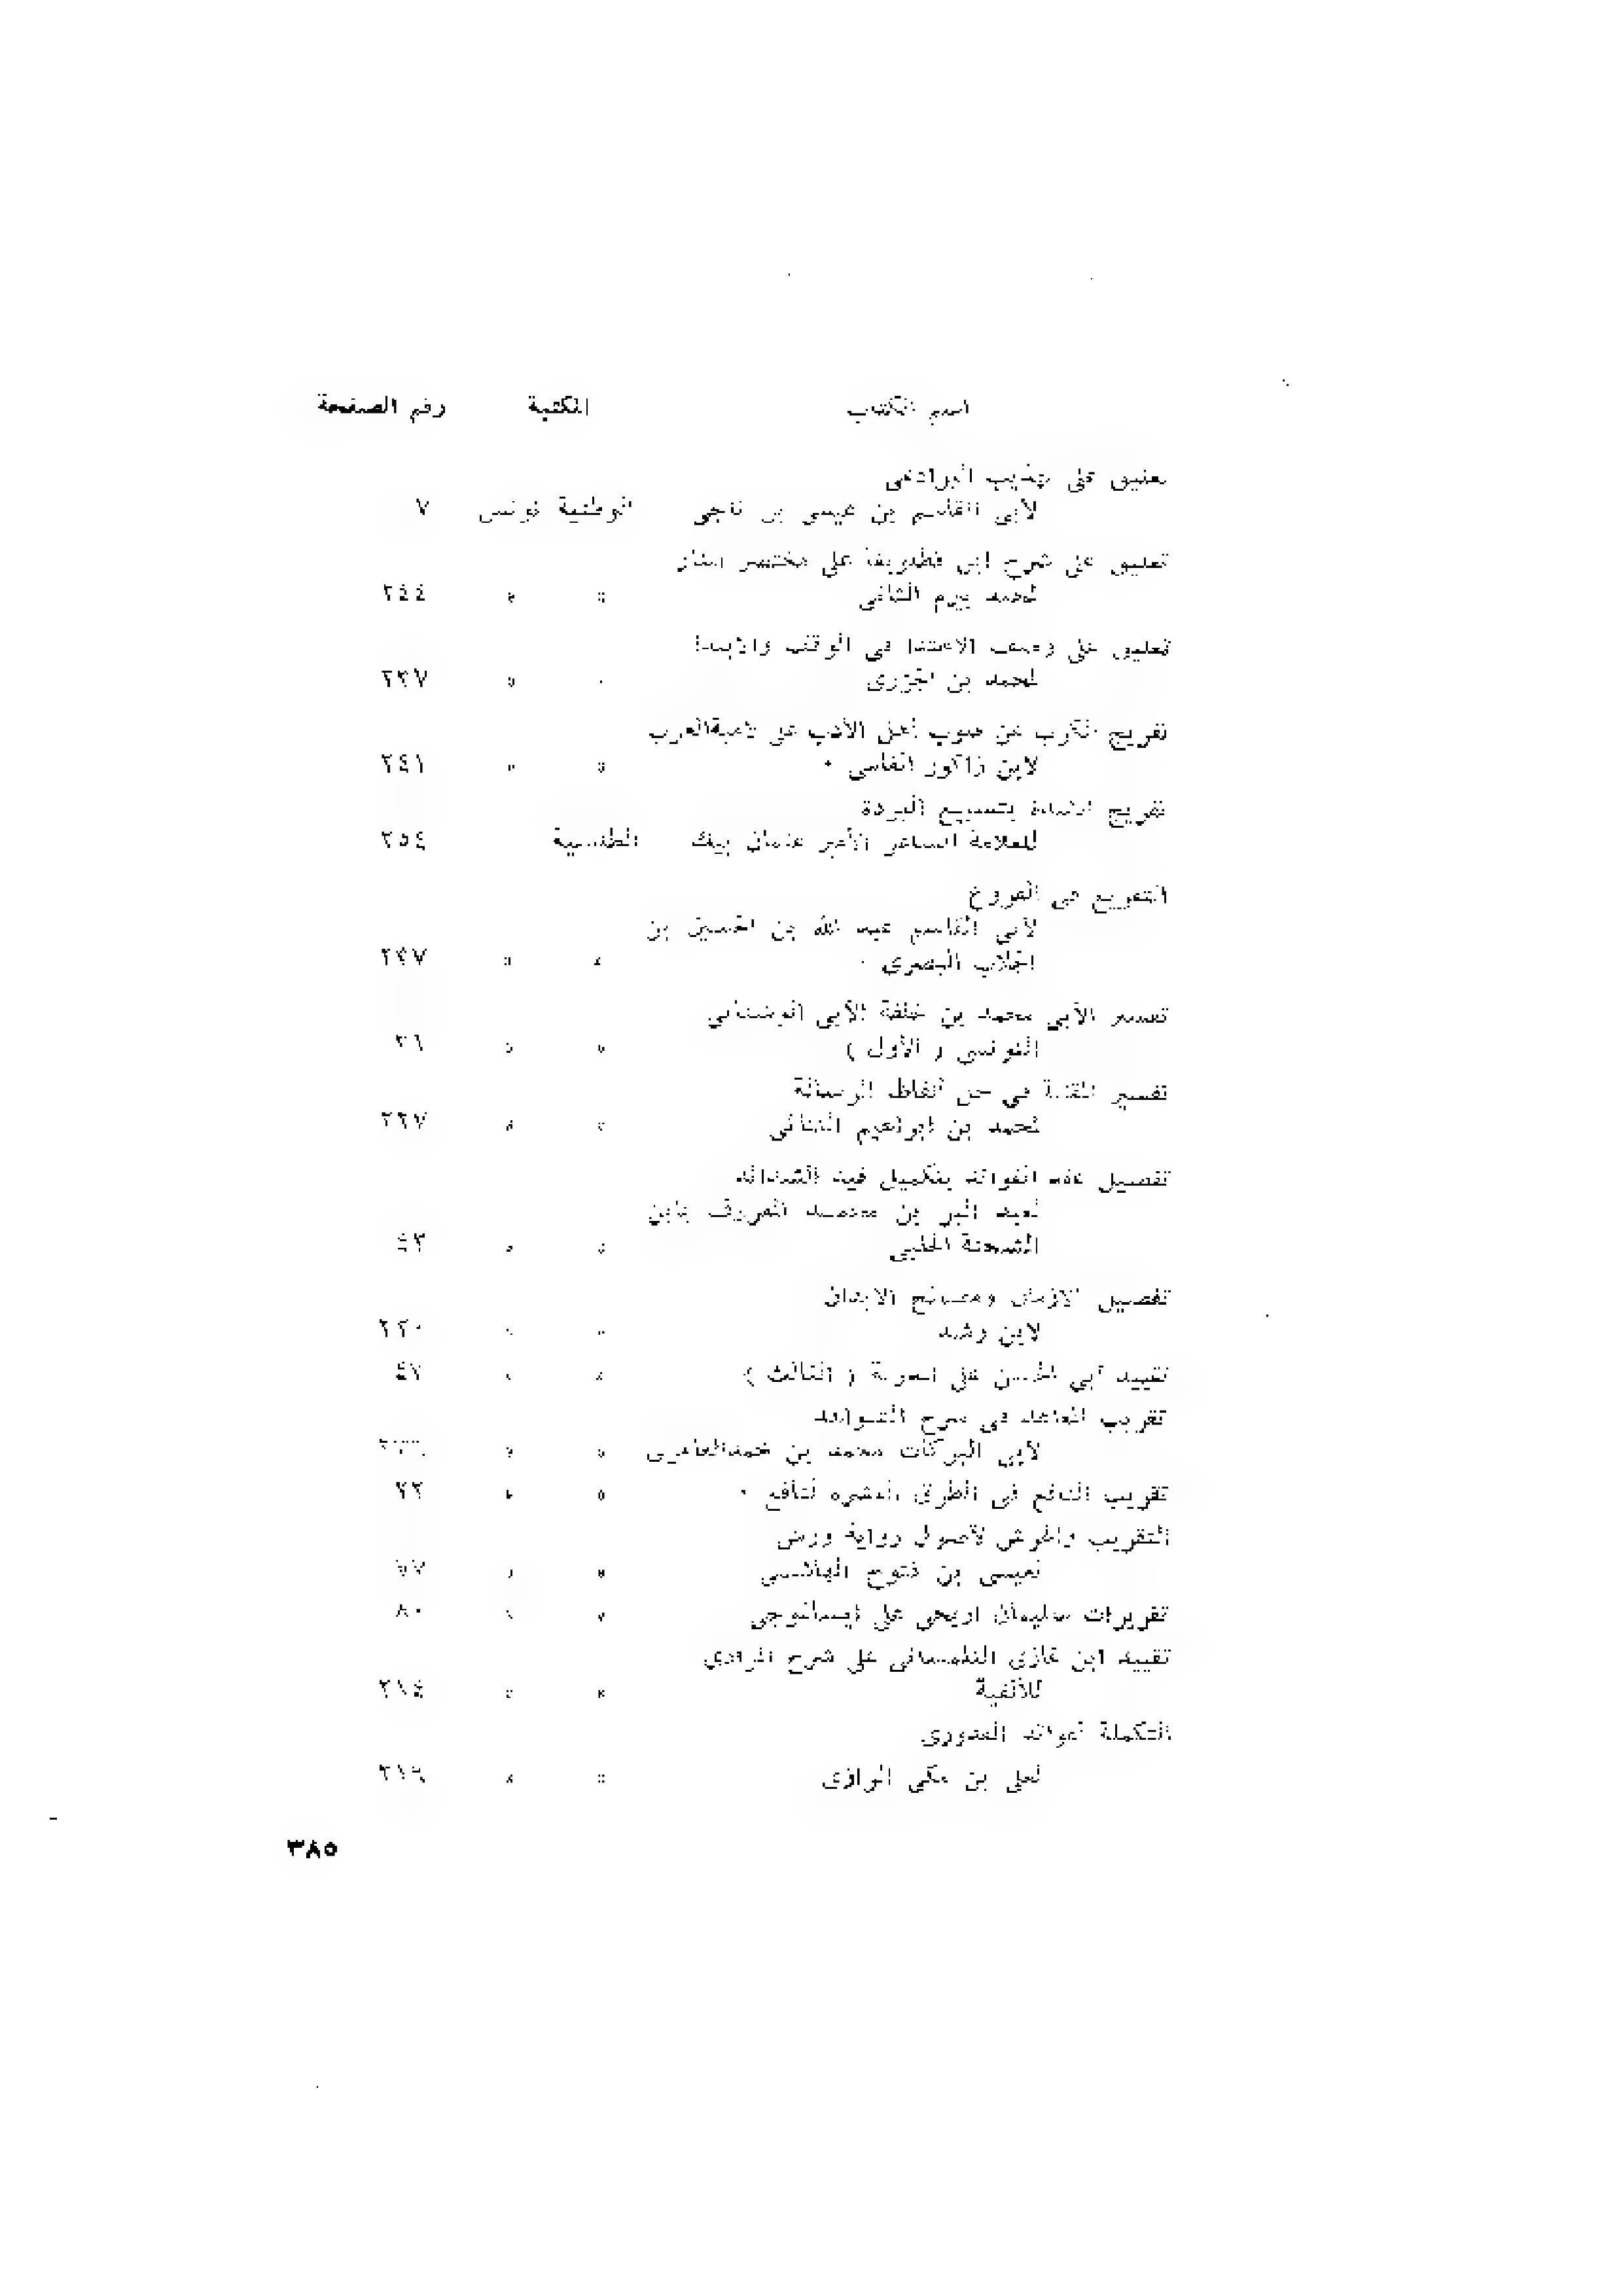 اسم الكتاب المكتبة رقم الصفحة
تعليق على تهذيب البرادعى
لأبى القاسم بن عيسى بن ناجى الوطنية تونس ٧
تعليق على شرح ابن قطلوبغا على مختصر المنار
لمحمد بيرم الثانى » » ٢٤٤
تعليق على وصف الاهتدا فى الوقف والابتدا
لمحمد بن الجزرى » ٢٣٧
تفريج الكرب عن قلوب أهل الأدب على لامية العرب
لابن زاكور الفاسى ٠ » » ٢٤١
تفريج بتسبيع البردة
للعلامة الشاعر الأمير عثمان بيك ٢٥٤
التفريع فى الفروع
لأبى القاسم عبد الله بن الحسين بن
الجلاب البصرى ٠ » » ٢٤٧
تفسير الأبى محمد بن خلفة الأبى الوشتاتى
التونسى ( الأول ) » » ٢٦
تفسير المقالة فى حل ألفاظ الرسالة
لمحمد بن ابراهيم التتائى » » ٢٢٧
تفصيل عقد الفوائد بتكميل قيد الشرائد
لعبد البر بن محمد المعروف بابن
الشحنة الحلبى » » ٤٣
تفصيل الازمان ومصالح الابدان
لابن رشد » » ٢٢٠
تقييد أبى الحسن على المدونة ( الثالث ) » » ٤٧
تقريب المقاصد فى شرح الشواهد
لأبى البركات محمد بن » »
تقريب النافع فى الطرق العشرة لنافع ٠ » » ٢٢
التقريب لأصول رواية ورش
لعيسى بن فتوح الهاشمى » »
تقريرات سليمان على ايساغوجى » » ٨٠
تقييد ابن غازى التلمسانى على شرح المرادى
للألفية » » ٢١٤
التكملة لفوائد القدورى
لعلى بن مكى الرازى » » ٢١٩
٣٨٥